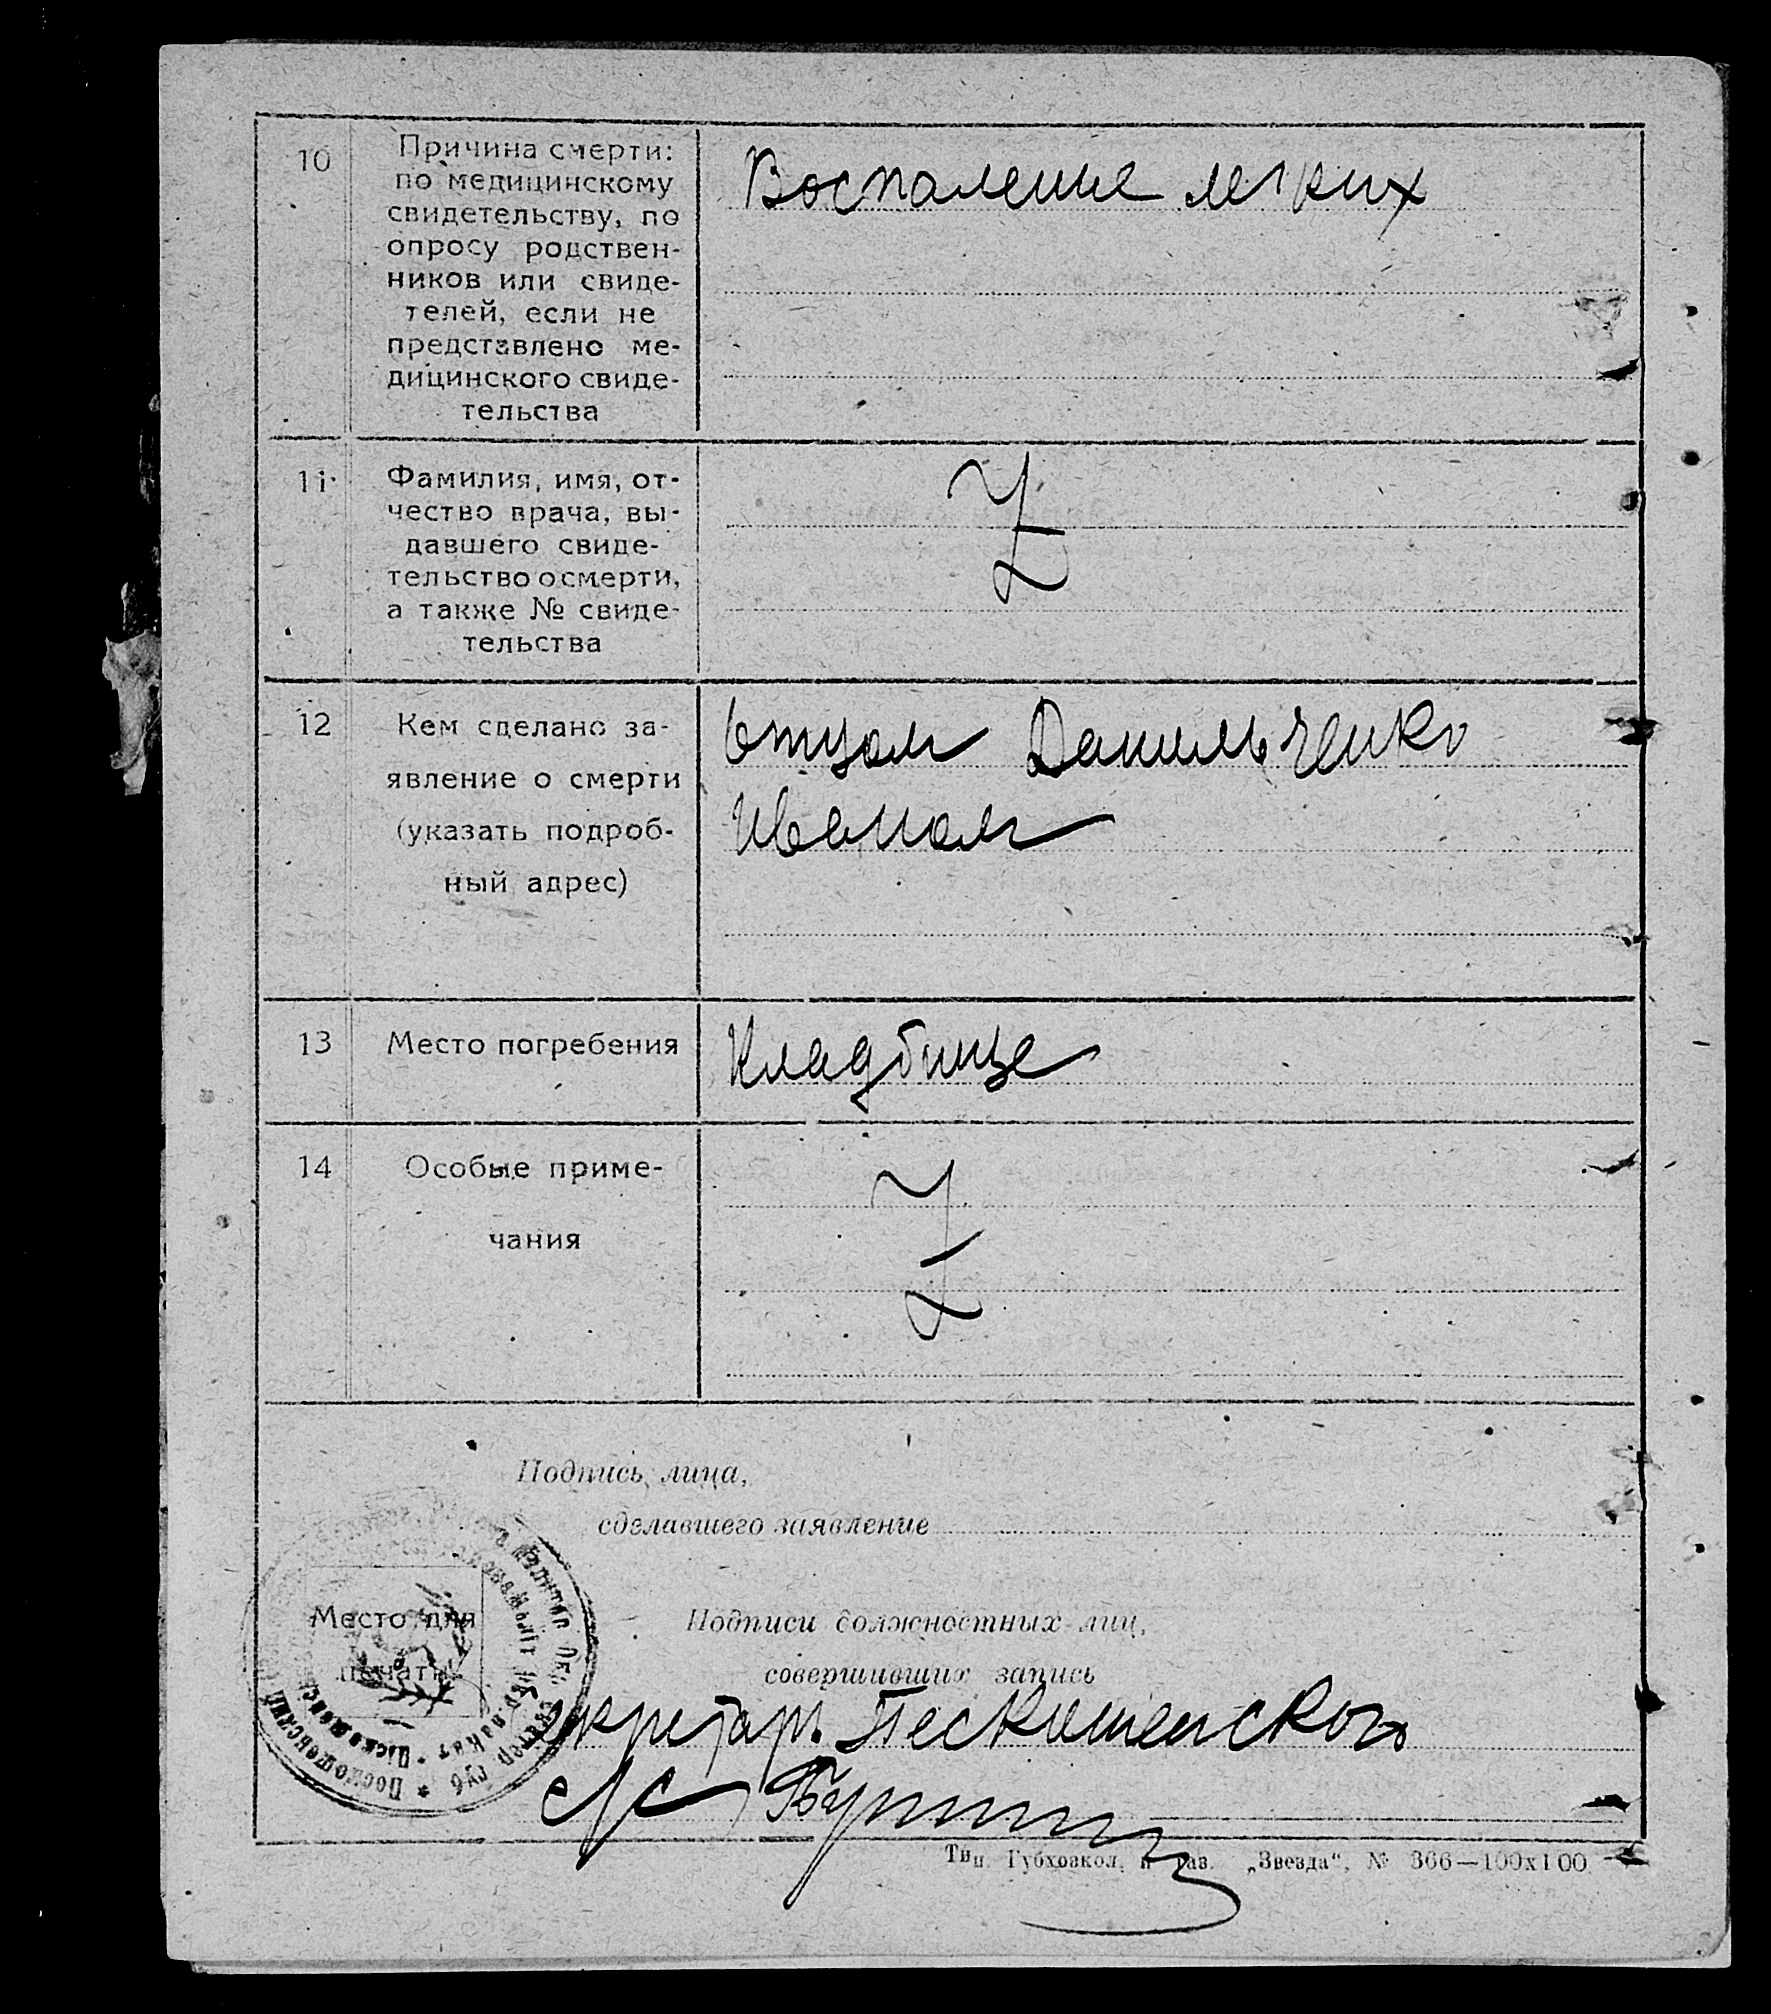 10
Причина смерти:
по медицинскому
свидетельству, по
опросу родствен-
ников или свиде-
телей, если не
представлено ме-
дицинского свиде-
тельства
Воспаление легких
11
Фамилия, имя, от-
чество врача, вы-
давшего свиде-
тельство о смерти,
а также № свиде-
тельства
Z
12
Кем сделано за-
явление о смерти
(указать подроб-
ный адрес)
Отцом Данильченко
Иваном
13
Место погребения
Кладбище
14
Особые приме-
чания
Z
Подпись лица,
сделавшего заявление
Место для
печати
Подписи должностных лиц,
совершивших запись
Секретарь Пескошенского
с/с
Тип. Губхозкол. и газ. „Звезда“, № 366—100х100